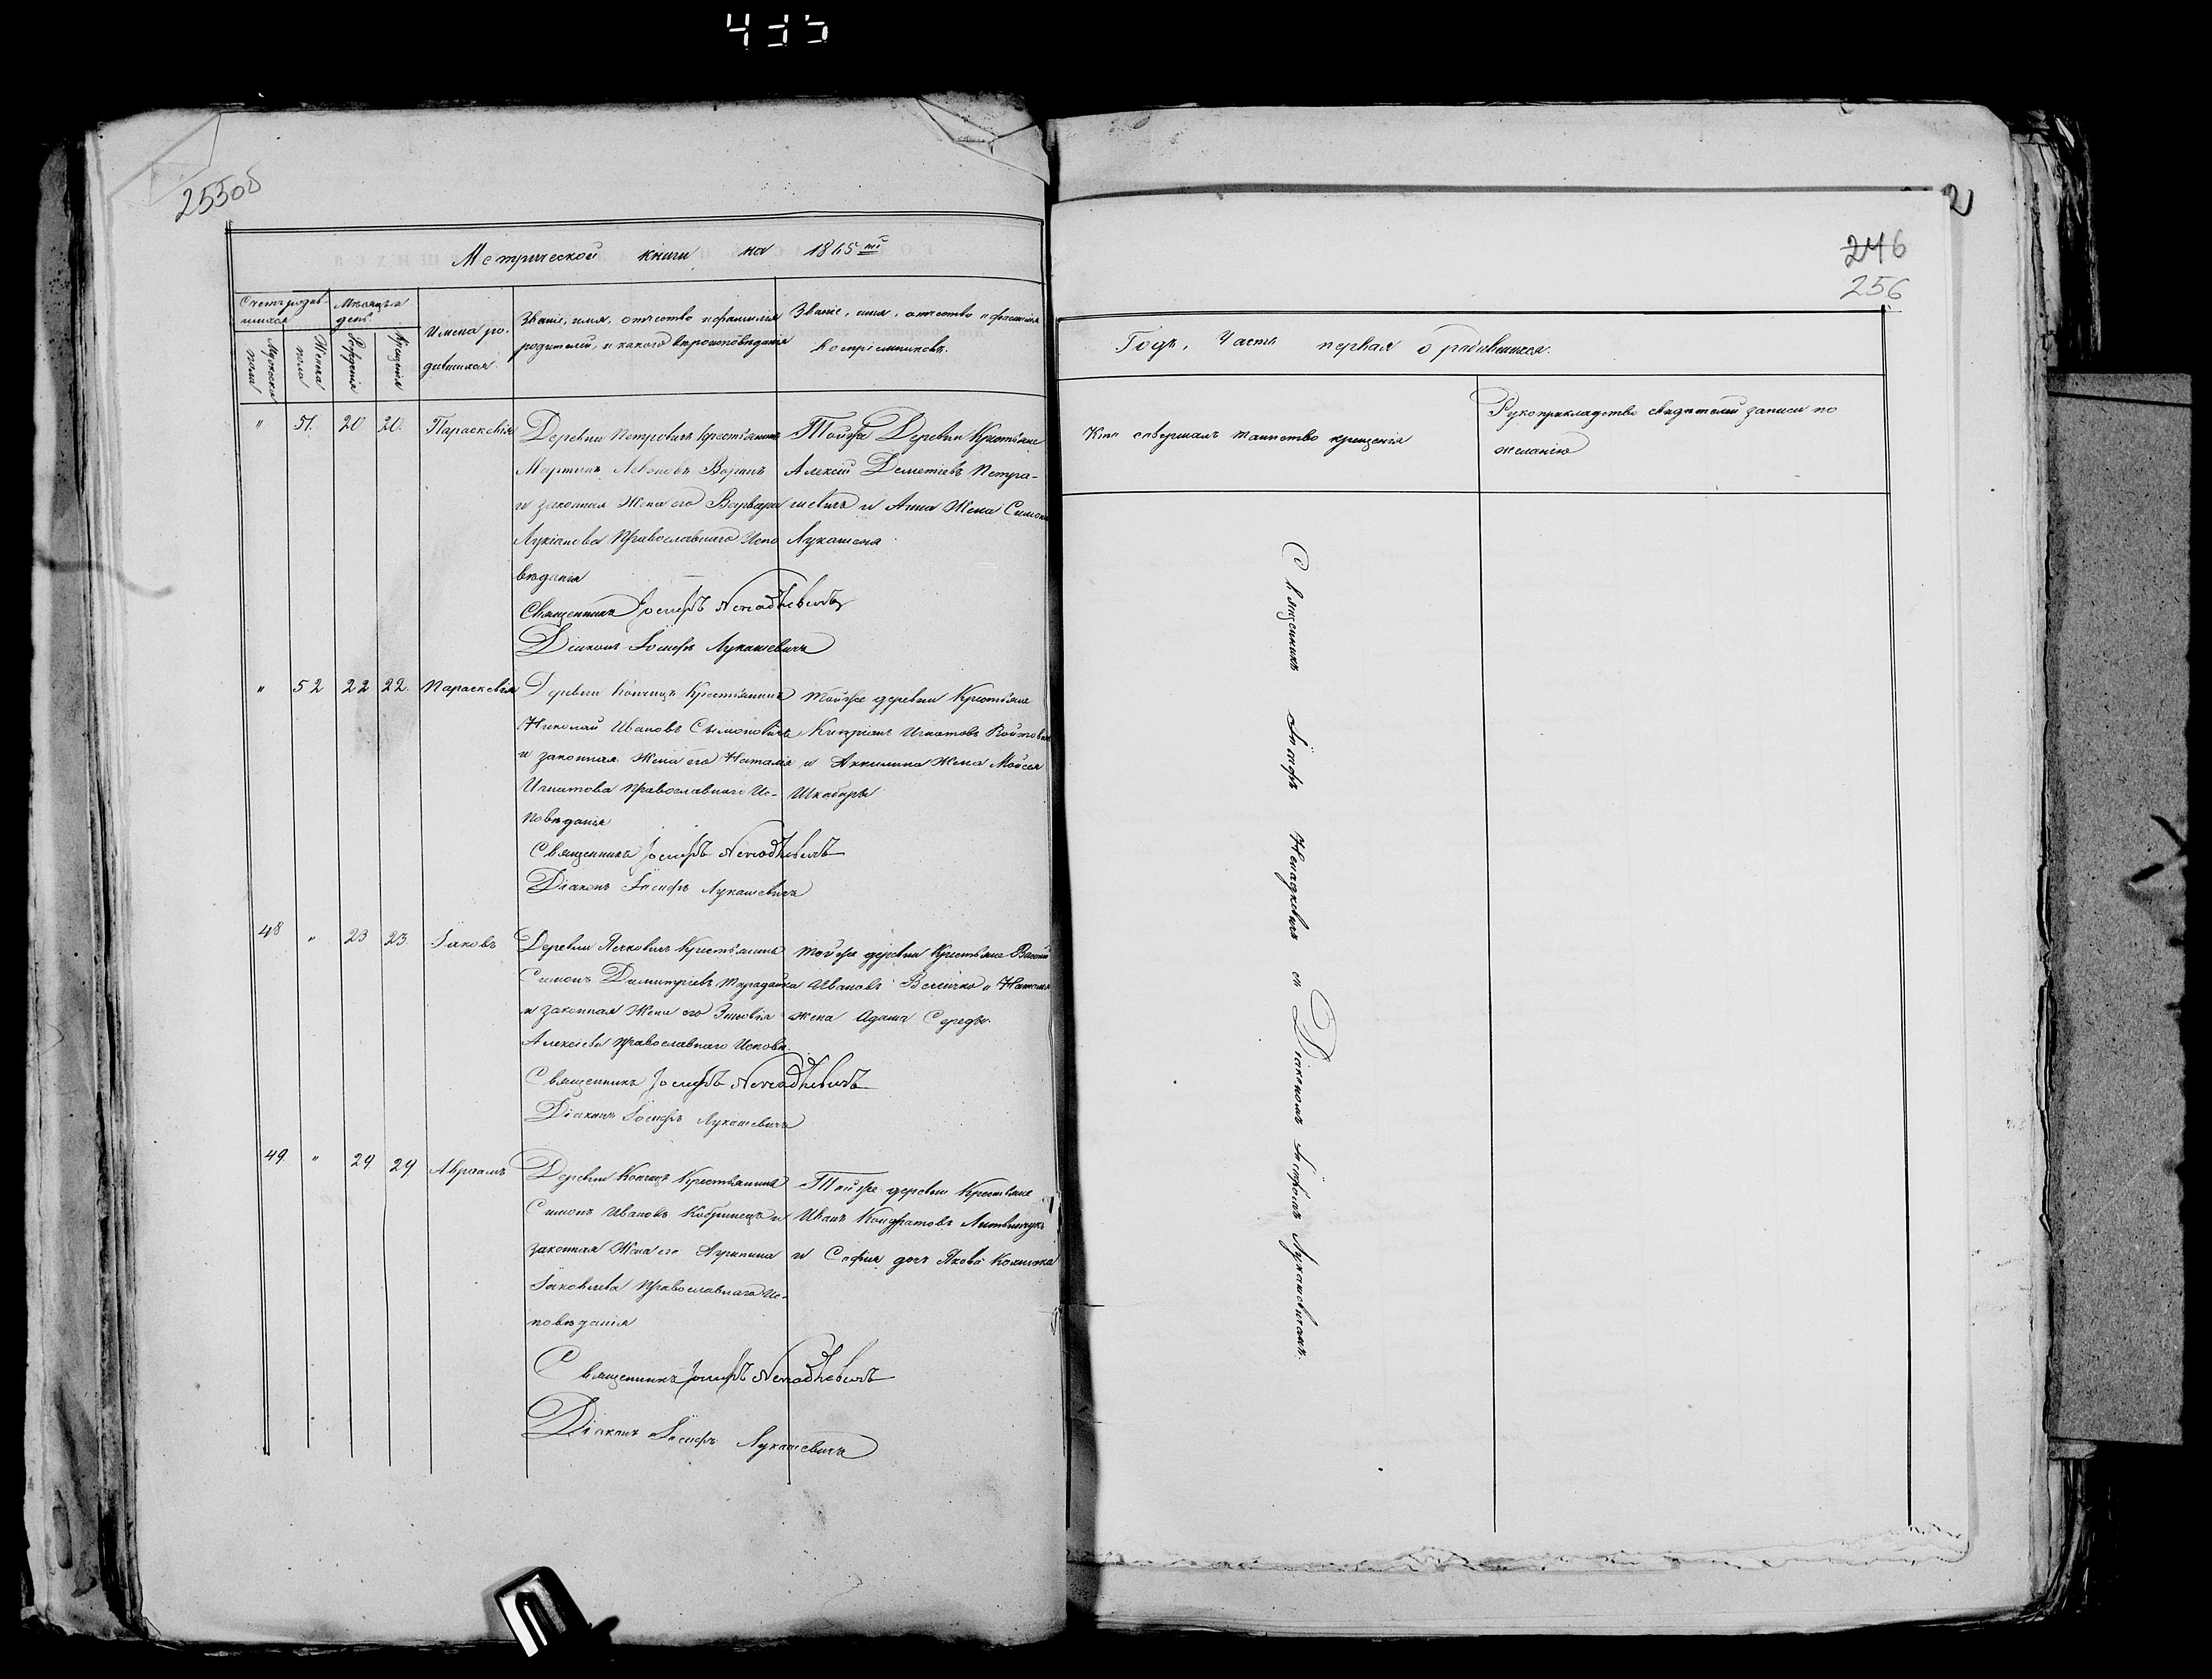 435
255об
Метрической книги на 1845 ій
Счетъ родившихся
Мѣсяцъ и день
Имена родившихся.
Званіе, имя, отчество и фамилія родителей, и какого вѣроисповѣданія
Званіе, имя, отчество и фамилія воспріемниковъ.
Мужеска пола
Женска пола
Рожденія
Крещенія
" 51. 20 20. Параскевія
Деревни Петровичъ Крестьянинъ
и законная Жена его Варвара
Лукіанова Православнаго Испо
вѣданія
Священникъ Іосифъ Ненадкевичъ
Діаконъ Іосифъ Лукашевичъ
Тойже Деревни Крестьяне
Алексій Дементіевъ Петра-
шевичъ и Анна Жена Симона
Лукашена
" 52 22 22. Параскевія
Деревни Кончицъ Крестьянинъ
Николай Ивановъ Сымоновичъ
и законная Жена его Наталія
Игнатова Православнаго Ис-
повѣданія
Священникъ Іосифъ Ненадкевичъ
Діаконъ Іосифъ Лукашевичъ
тойже деревни Крестьяне
Кипріанъ Игнатовъ
и Акилина Жена Моисея
Шкабары
48 " 23 23. Іаковъ
Деревни Ячковичъ Крестьянинъ
Симонъ Димитріевъ Тарадайка
и законная Жена его Зиновія
Алексіева Православнаго Исповѣ.
Священникъ Іосифъ Ненадкевичъ
Діаконъ Іосифъ Лукашевичъ
тойже деревни Крестьяне Василій
Ивановъ Величко и Наталія
жена Адама Середы.
49 " 24 24 Авраамъ
Деревни Кончицъ Крестьянинъ
Симонъ Ивановъ Кобринецъ и
законная Жена его Агрипина
Іаковлева Православнаго Ис-
повѣданія
Священникъ Іосифъ Ненадкевичъ
Діаконъ Іосифъ Лукашевичъ
Тойже деревни Крестьяне
Иванъ Кондратовъ Литвинчукъ
и Софія дочь Якова
2
246
256
Годъ, Часть первая о родившихся.
Кто совершалъ таинство крещенія
Рукоприкладство свидѣтелей записи по
желанію
Священникъ Іосифъ Ненадкевичъ съ Діакономъ Іосифомъ Лукашевичемъ.